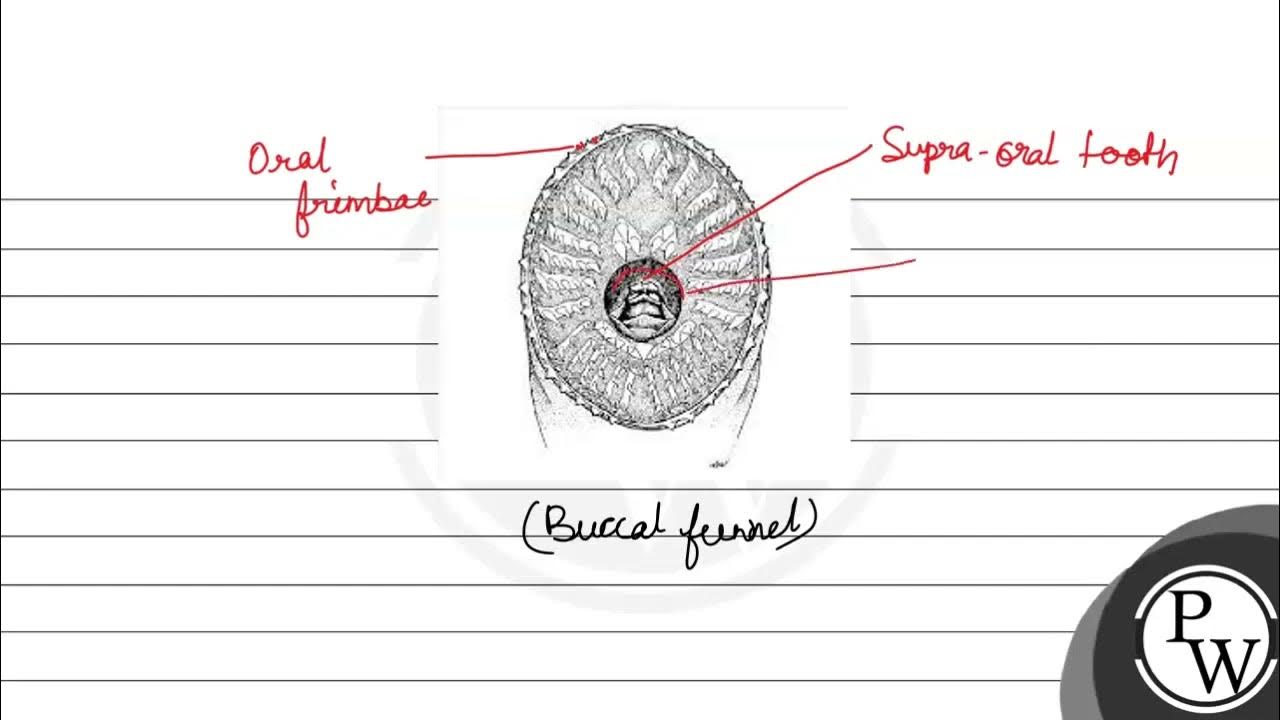 Oral
frimbae
Supra-oral tooth
(Buccal funnel)
PW